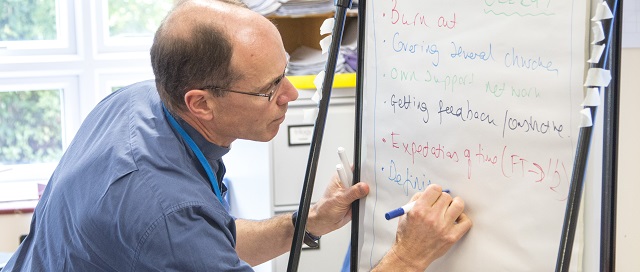 • Burn out
• Covering several churches
• own support network
• Getting feedback / constructive
• Expectation of time (FT → 1/2)
• Defini